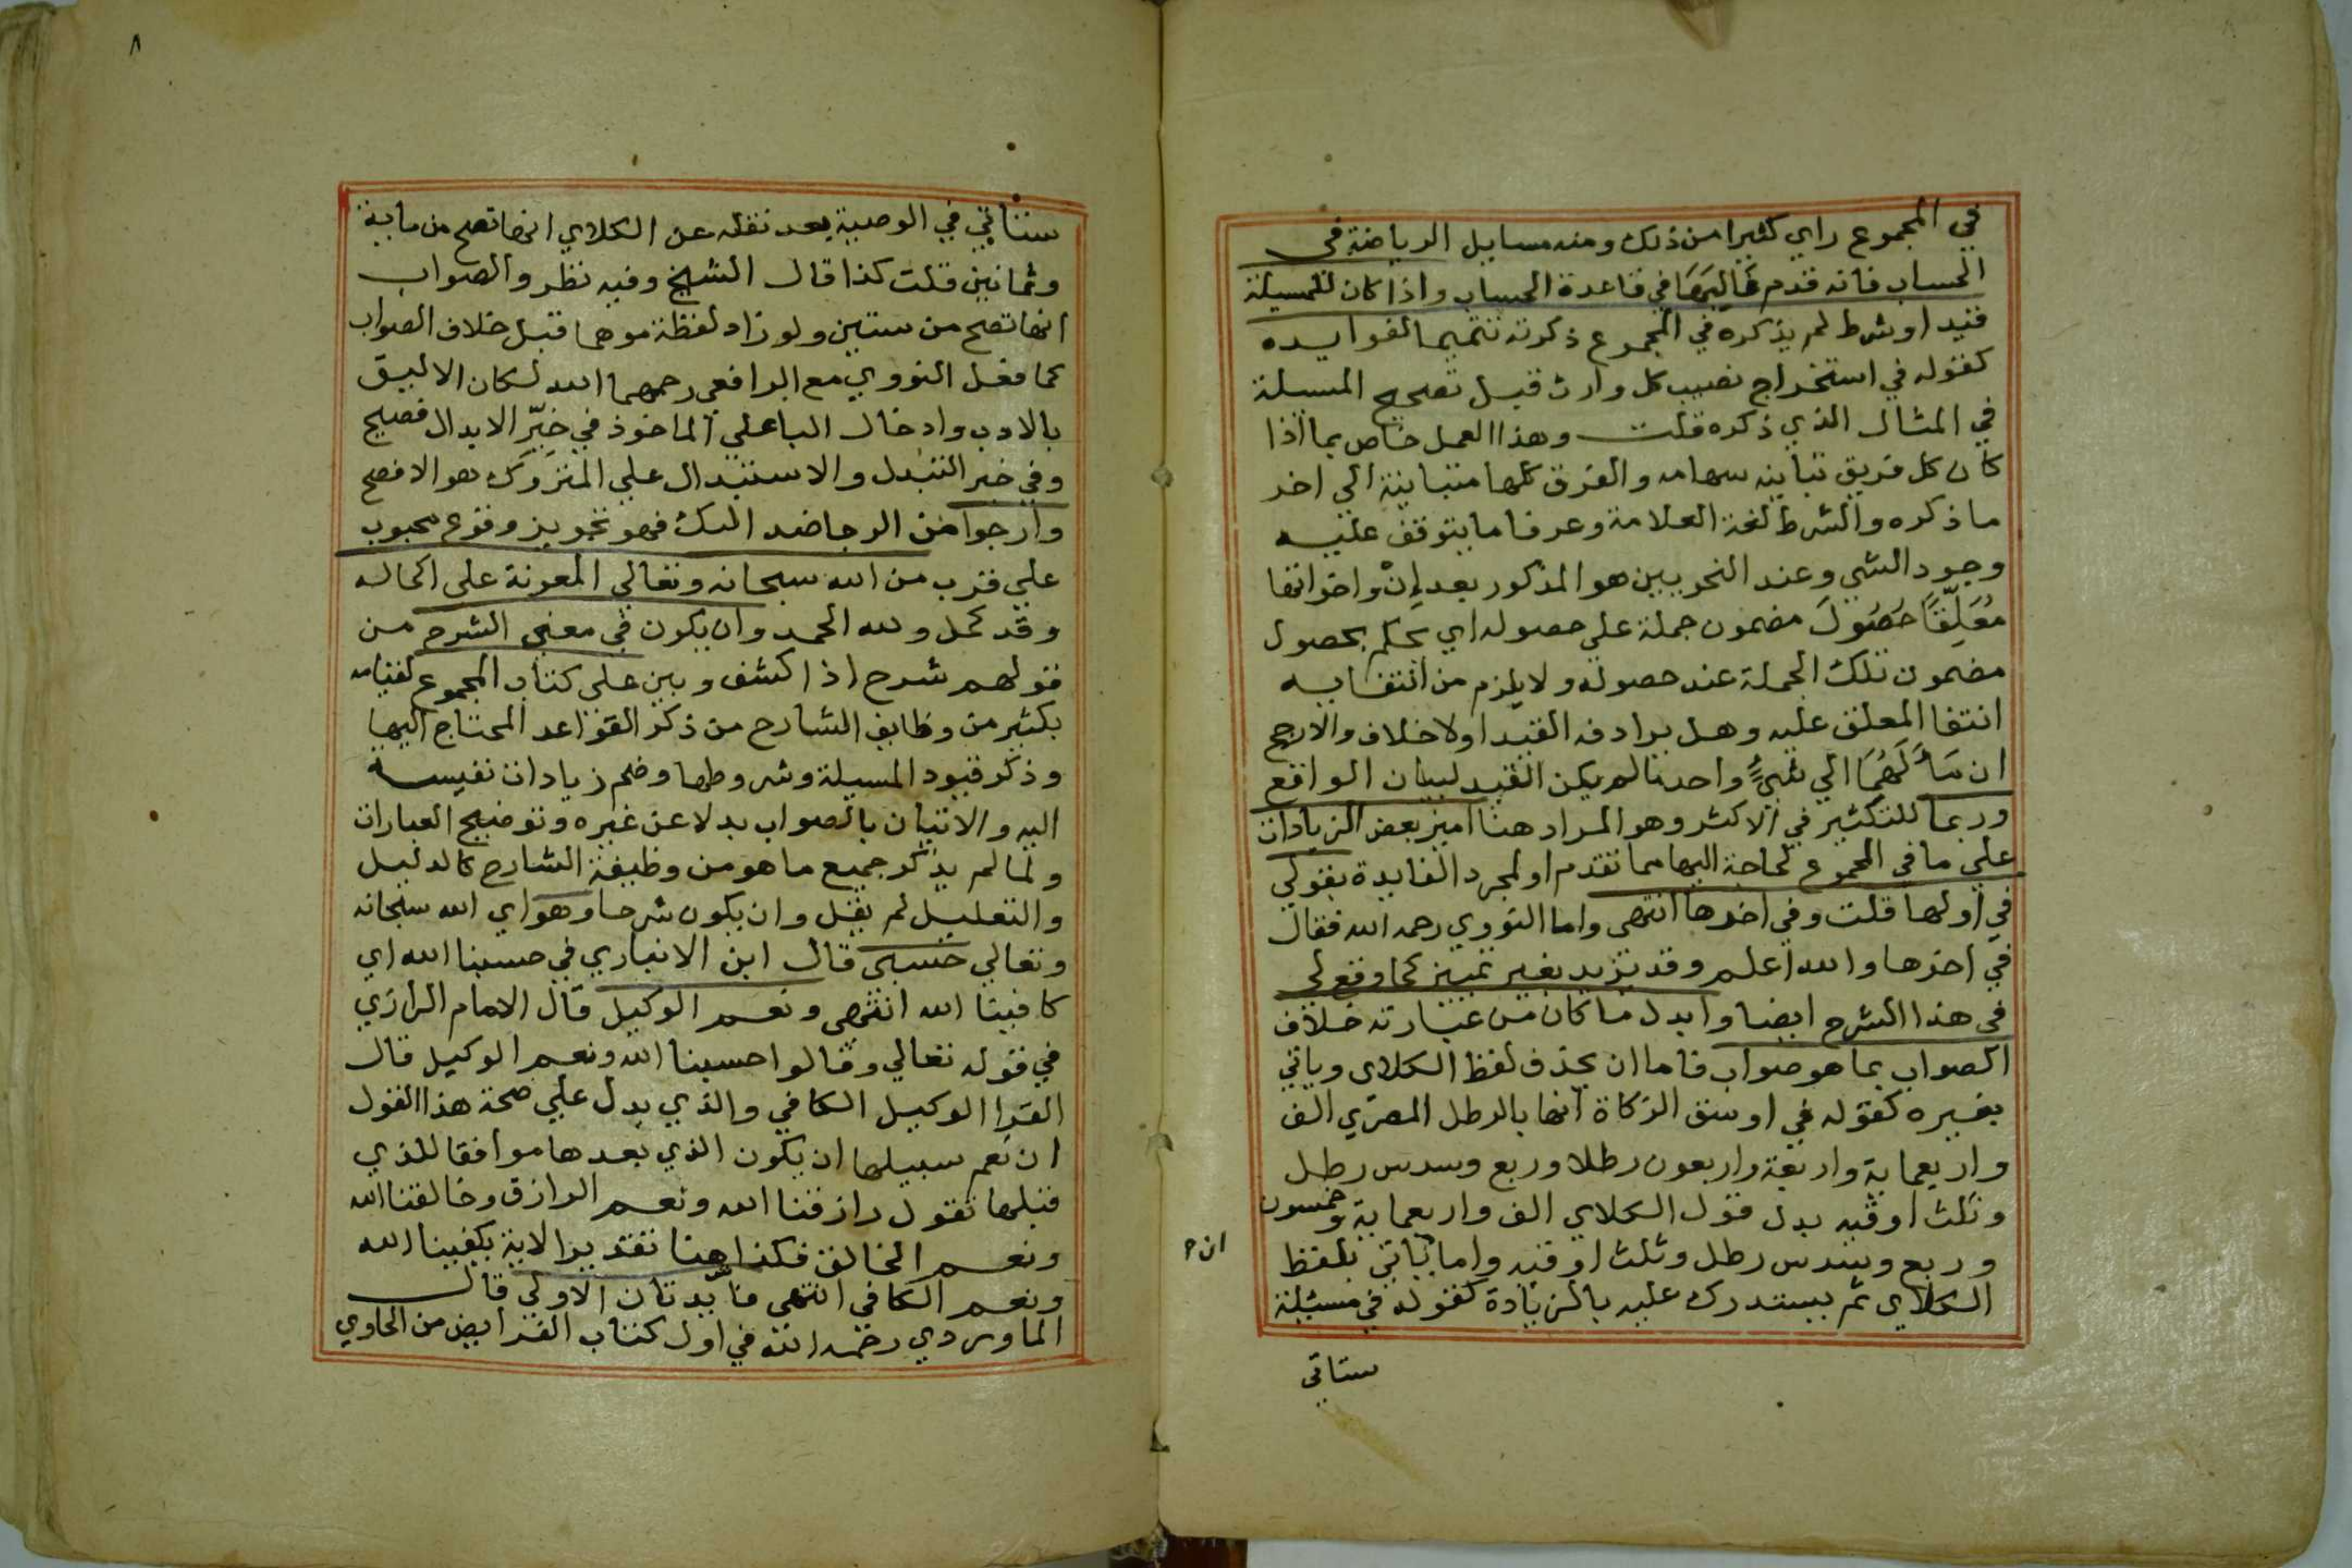 في المجموع راي كثيرا من ذلك ومنه مسايل الرياضة في
الحساب فانه قدم غالبها في قاعدة الحساب واذا كان للمسيلة
قيد او شرط لم يذكره في المجموع ذكرته تتميما لفوايده
كقوله في استخراج نصيب كل وارث قبل تصحيح المسلة
في المثال الذي ذكره قلت وهذا العمل خاص بما اذا
كان كل فريق تباينه سهامه والفرق كلها متباينة الي اخر
ما ذكره والشرط لغة العلامة وعرفا ما يتوقف عليه
وجود الشي وعند النحويين هو المذكور بعد اِنْ واخواتها
مُعَلِّقًا حُصُولَ مضمون جملة علي حصوله اي يحكم بحصول
مضمون تلك الجملة عند حصوله ولا يلزم من انتفايه
انتفا المعلق عليه وهل يرادفه القيد اولا خلاف والارجح
ان مَآلَهُمَا الي شيءٍ واحد ما لم يكن القيد لبيان الواقع
وربما للتكثير في الاكثر وهو المراد هنا اميز بعض الزيادات
علي ما في المجموع لحاجة اليها مما تقدم او لمجرد الفايدة بقولي
في اولها قلت وفي اخرها انتهى واما النووي رحمه الله فقال
في اخرها والله اعلم وقد تزيد بغير تمييز كما وقع لي
في هذا الشرح ايضا وابدل ما كان من عبارته خلاف
الصواب بما هو صواب فاما ان يحذف لفظ الكلاى وياتي
بغيره كقوله في اوسق الزكاة انها بالرطل المصري الف
واربعماية واربعة واربعون رطلا وربع وسدس رطل
وثلث اوقيه بدل قول الكلاي الف واربعماية وخمسون
وربع وسدس رطل وثلث اوقيه واما ياتي بلفظ
ان
الكلاي ثم يستدرك عليه بالزيادة كقوله في مسئلة
ستاتي
٨
ستاتي في الوصية بعد نقله عن الكلاي انها تصح من ماية
وثمانين قلت كذا قال الشيخ وفيه نظر والصواب
انها تصح من ستين ولو زاد لفظة موهما قبل خلاف الصواب
كما فعل النووي مع الرافعى رحمهما الله لكان الاليق
بالادب وادخال الباعلي الماخوذ في خبر الابدال فصيح
وفي خبر التبدل والاستبدال علي المتروك هو الافصح
وارجوا من الرجا ضد الىك فهو تجويز وقوع محبوب
علي قرب من الله سبحانه وتعالي المعونة على اكماله
وقد كمل ولله الحمد وان يكون في معنى الشرح من
قولهم شرح اذا كشف وبين علي كتاب المجموع لقيامه
بكثير من وظايف الشارح من ذكر القواعد المحتاج اليها
وذكر قيود المسيلة وشروطها وضم زيادات نفيسه
اليه والاتيان بالصواب بدلا عن غيره وتوضيح العبارات
ولما لم يذكر جميع ما هو من وظيفة الشارح كالدليل
والتعليل لم يقل وان يكون شرحا وهو اي الله سبحانه
وتعالي حسبى قال ابن الانباري في حسبنا الله اي
كافينا الله انتهى ونعم الوكيل قال الامام الرازي
في قوله تعالي وقالوا حسبنا الله ونعم الوكيل قال
الفرا الوكيل الكافي والذي يدل علي صحة هذا القول
ان نعم سبيلها ان يكون الذي بعدها موافقا للذي
قبلها تقول رازقنا الله ونعم الرازق وخالقنا الله
ونعم الخالق فكذا هنا تقدير الاية يكفينا الله
ونعم الكافي انتهى فايدتان الاولي قال
الماوردي رحمه الله في اول كتاب الفرايض من الحاوي